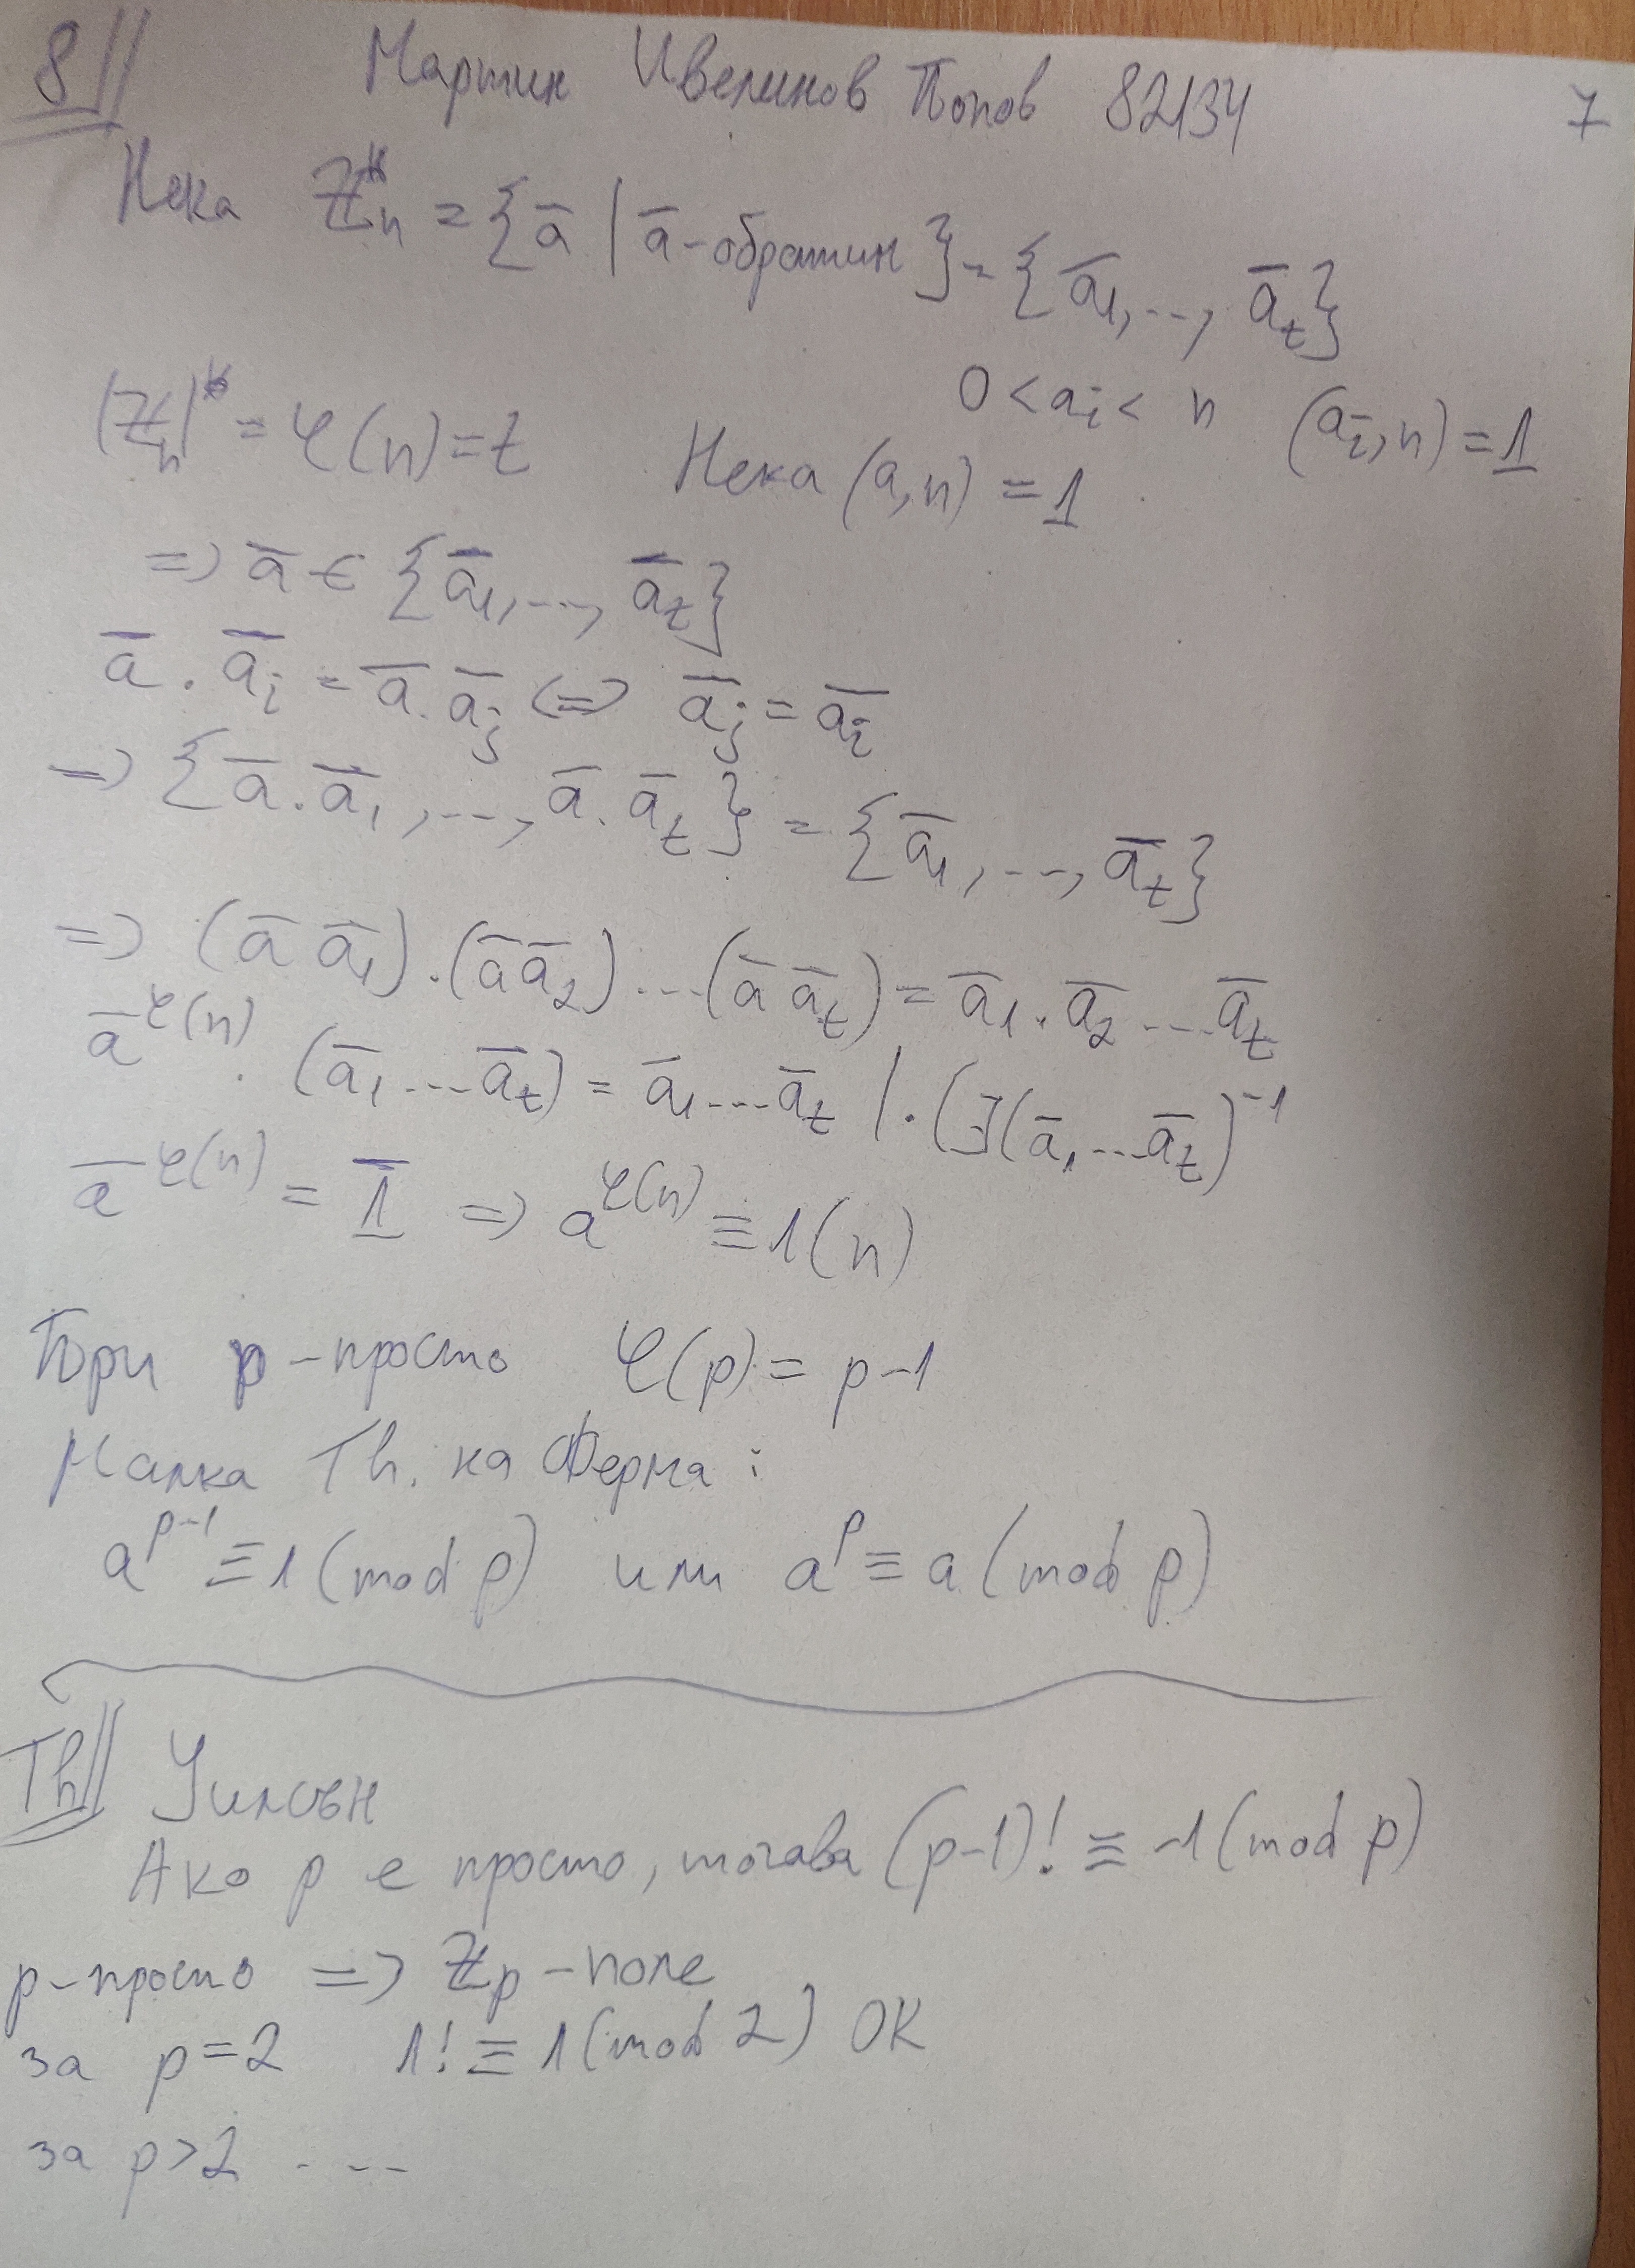 8 Мартин Ивелинов Попов 82134 7
Нека ℤₙ* = {ā | ā - обратим} = {ā₁, ..., āₜ}
0 < aᵢ < n (aᵢ, n) = 1
|ℤₙ|* = φ(n) = t Нека (a, n) = 1
=> ā ∈ {ā₁, ..., āₜ}
ā . āᵢ = ā . āⱼ <=> āⱼ = āᵢ
=> {ā . ā₁, ..., ā . āₜ} = {ā₁, ..., āₜ}
=> (ā ā₁) . (ā ā₂) ... (ā āₜ) = ā₁ . ā₂ ... āₜ
ā^φ(n) . (ā₁ ... āₜ) = ā₁ ... āₜ | . (∃(ā₁ ... āₜ)⁻¹
ā^φ(n) = 1̄ => a^φ(n) ≡ 1 (n)
При p - просто φ(p) = p - 1
Малка Th. на Ферма :
a^(p-1) ≡ 1 (mod p) или a^p ≡ a (mod p)
Th Уилсън
Ако p е просто, тогава (p-1)! ≡ -1 (mod p)
p - просто => ℤₚ - поле
за p = 2 1! ≡ 1 (mod 2) OK
за p > 2 ----